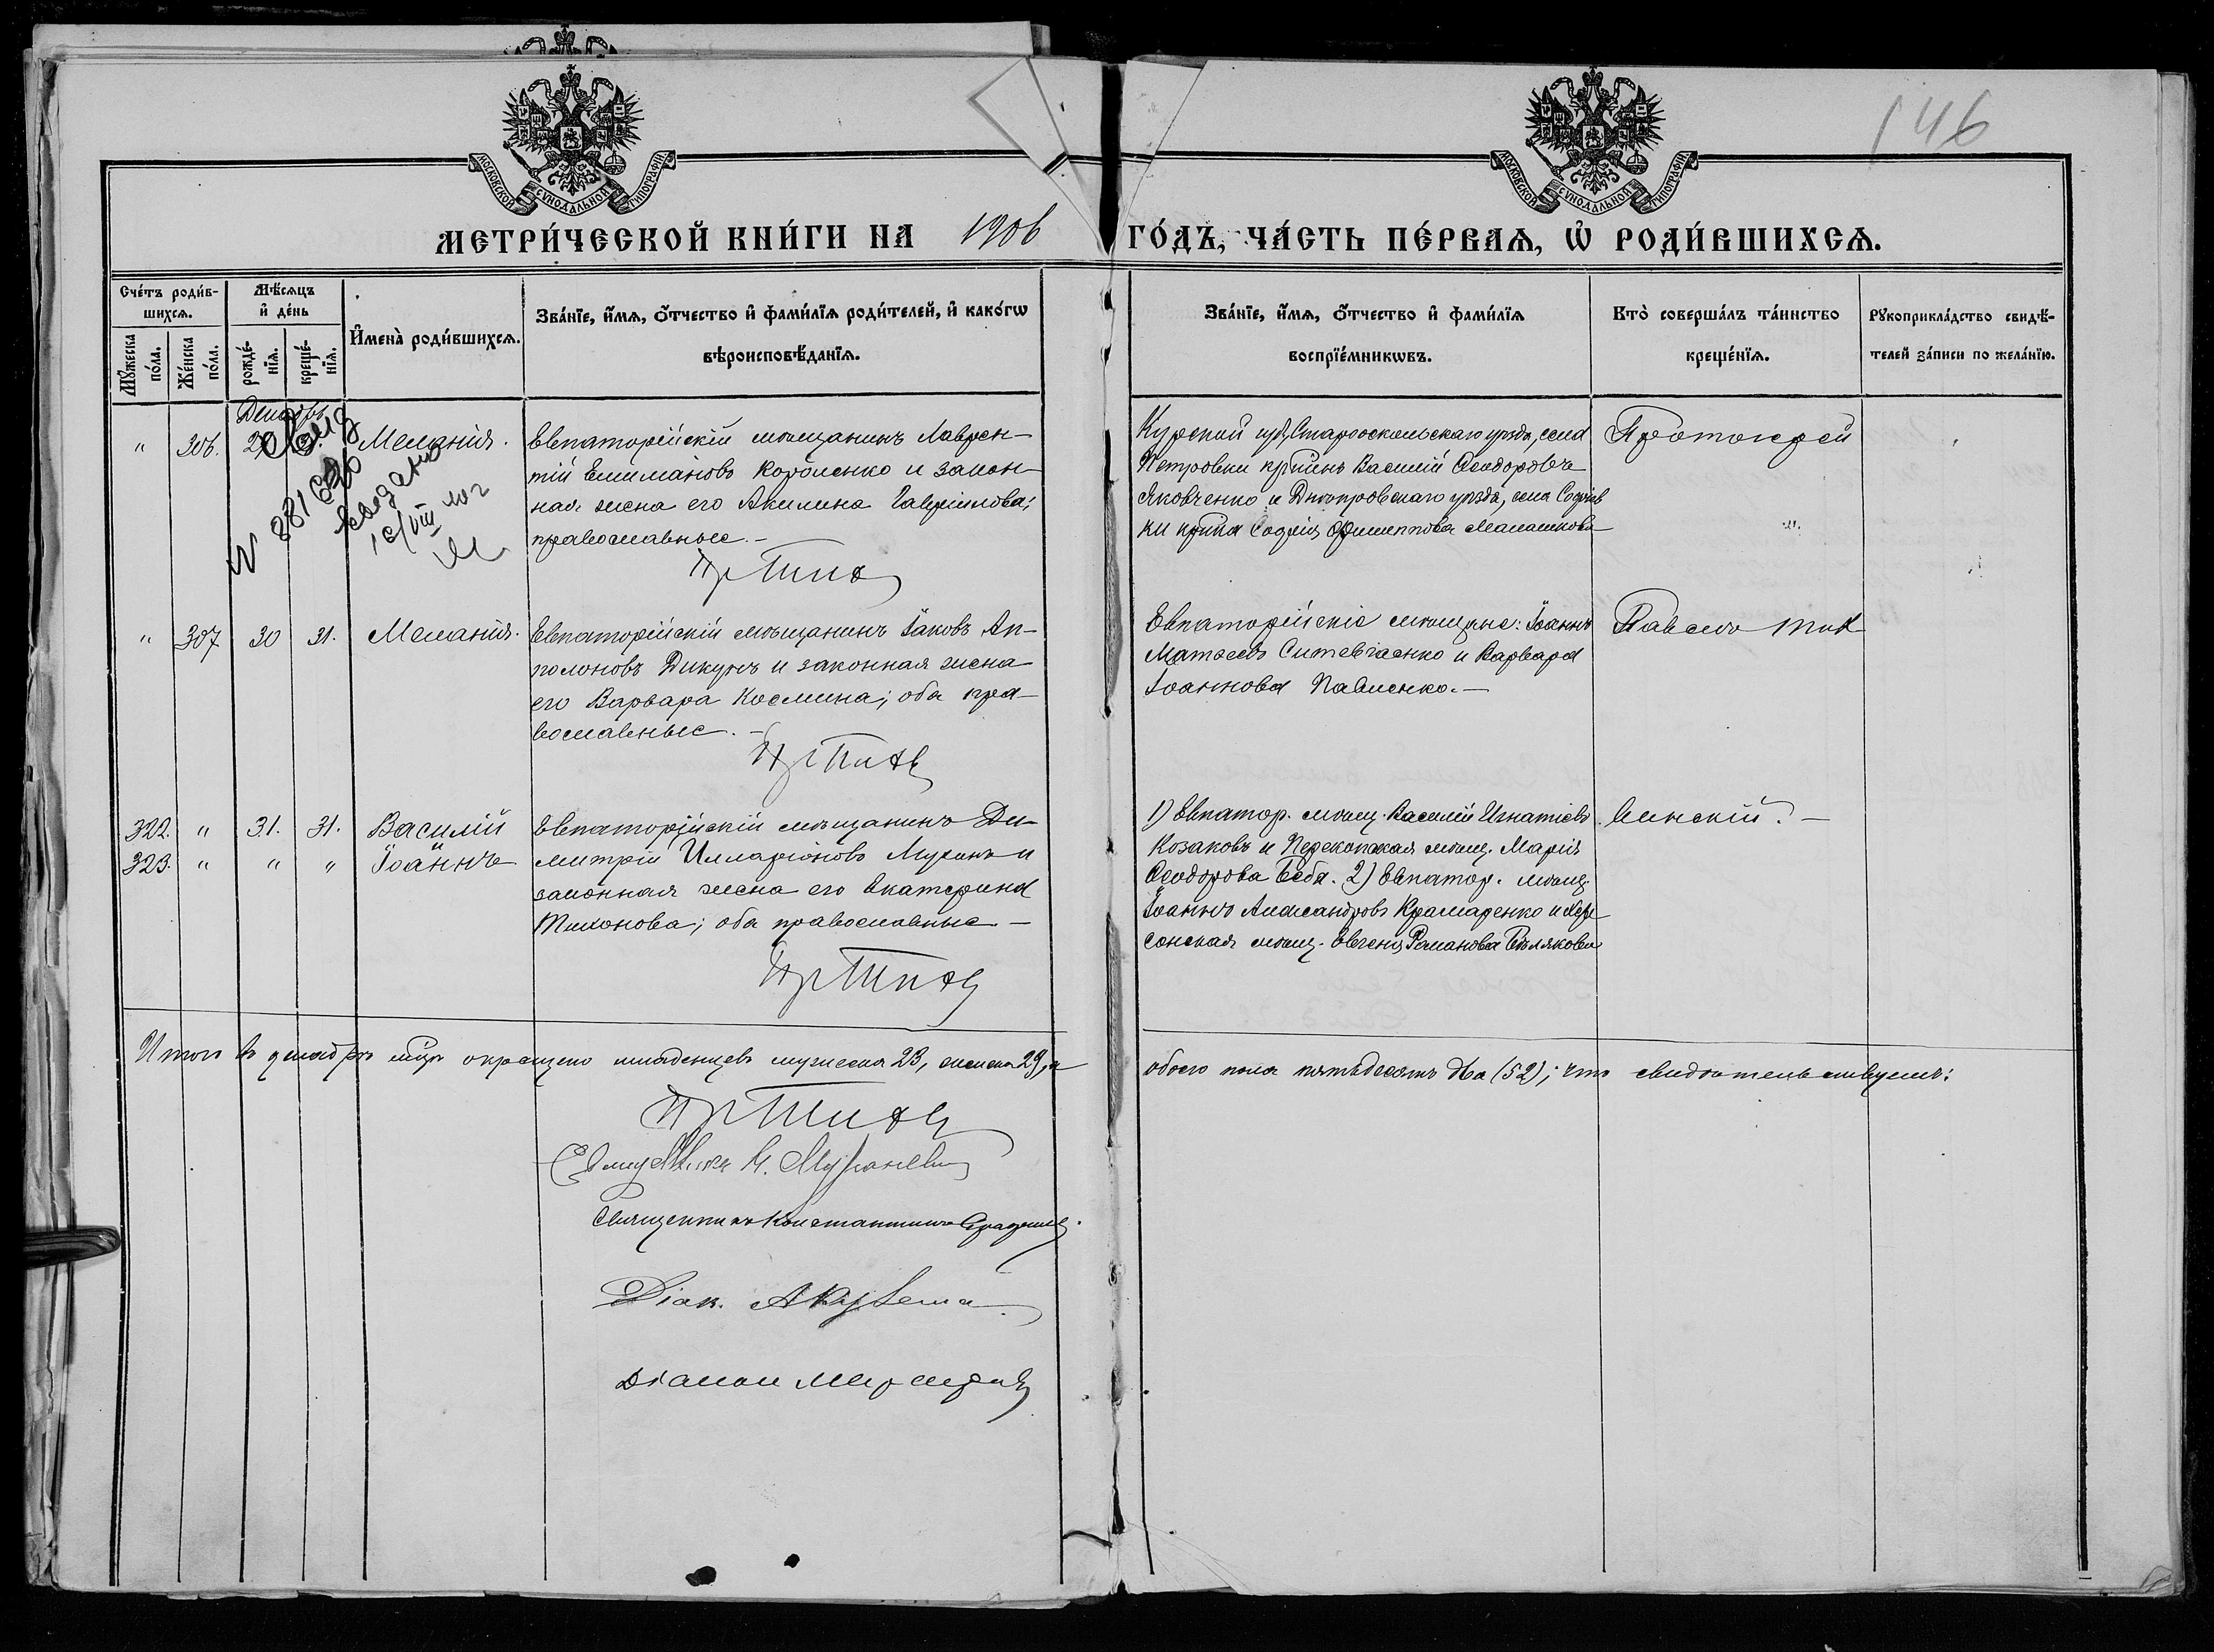 146
МОСКОВСКОЙ СУНОДАЛЬНОЙ ТИПОГРАФІИ
МОСКОВСКОЙ СУНОДАЛЬНОЙ ТИПОГРАФІИ
МЕТРИ́ЧЕСКОЙ КНИ́ГИ НА 1906 ГО́ДЪ, ЧА́СТЬ ПЕ́РВАѦ, Ѡ РОДИ́ВШИХСѦ.
Сче́тъ роди́в-
шихсѧ.
Мꙋ́жеска по́ла.
Же́нска по́ла.
Мѣ́сѧцъ
и҆ де́нь
рожде́-
нїѧ.
креще́-
нїѧ.
И҆мена̀ роди́вшихсѧ.
Зва́нїе, и҆́мѧ, ѻ҆́тчество и҆ фами́лїѧ роди́телей, и҆ како́гѡ
вѣроисповѣ́данїѧ.
Зва́нїе, и҆́мѧ, ѻ҆́тчество и҆ фами́лїѧ
воспрїе́мникѡвъ.
Кто̀ соверша́лъ та́инство
креще́нїѧ.
Рꙋкоприкла́дство свидѣ́-
телей за́писи по жела́нїю.
Декабрь
" 306. Меланія.
Евпаторійскій мѣщанинъ Лаврен-
тій Короленко и закон-
ная жена его Акилина Гавріилова;
православные. –
№ 881630
выдано
Курской губ, Старооскольскаго уѣзда, села
Петровки кр-нинъ Василій Ѳеодоровъ
Яковченко и Днѣпровскаго уѣзда, села
Софія Филиппова
Протоіерей
" 307 30 31. Меланія.
Евпаторійскій мѣщанинъ Іаковъ Ап-
полоновъ Дикунъ и законная жена
его Варвара Космина; оба пра-
вославные. –
Евпаторійскіе мѣщане: Іоаннъ
Матѳеевъ и Варвара
Іоаннова Павленко. –
Павелъ Тих
322. " 31. 31. Василій
323. " " " Іоаннъ
Евпаторійскій мѣщанинъ Ди-
митрій Илларіоновъ Мухинъ и
законная жена его Екатерина
Тихонова; оба православные –
1) Евпатор. мѣщ. Василій Игнатіевъ
Козаковъ и Перекопская мѣщ. Марія
Ѳеодорова Беба. 2) Евпатор. мѣщ.
Іоаннъ Александровъ Крамаренко и Хер-
сонская мѣщ. Евгенія Романова Бѣлякова
винскій. –
Итого въ декабрѣ м-цѣ окрещено младенцевъ мужеска 23, женска 29, а
обоего пола пятьдесятъ два (52); что свидѣтельствуемъ:
Священникъ Константинъ
Діак. А
Діакон